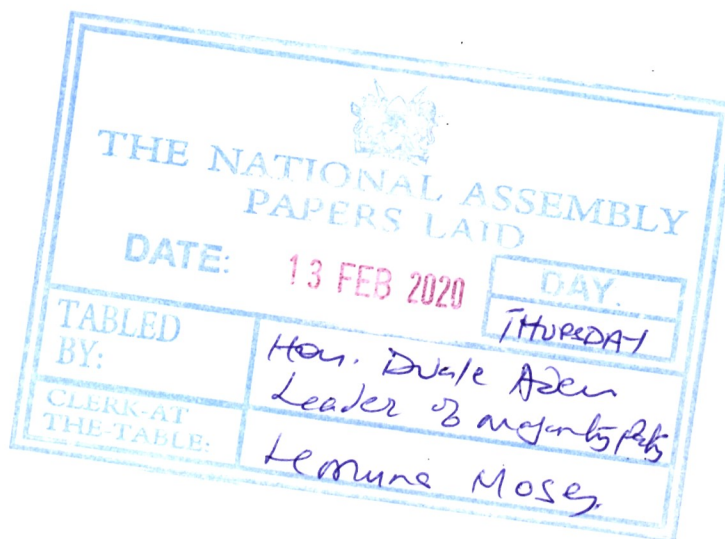 THE NATIONAL ASSEMBLY
PAPERS LAID
DATE: 13 FEB 2020
DAY.
THURSDAY
TABLED
BY:
Hon. Duale Aden
Leader of majority Party
CLERK-AT
THE-TABLE:
Moses